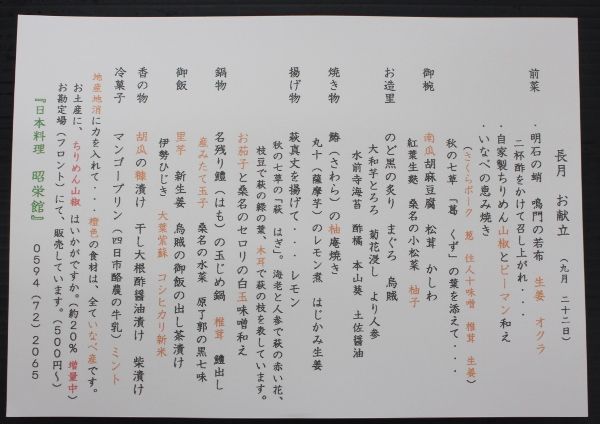 長月　お献立　（九月　二十二日）
前菜　・明石の蛸　鳴門の若布　生姜　オクラ
二杯酢をかけて召し上がれ・・・
・自家製ちりめん山椒とピーマン和え
・いなべの恵み焼き
（さくらポーク　葱　住人十味噌　椎茸　生姜）
秋の七草　「葛　くず」の葉を添えて・・・
御椀　南瓜胡麻豆腐　松茸　かしわ
紅葉生麩　桑名の小松菜　柚子
お造里　のど黒の炙り　まぐろ　烏賊
大和芋とろろ　菊花浸し　より人参
水前寺海苔　酢橘　本山葵　土佐醤油
焼き物　鰆（さわら）の柚庵焼き
丸十（薩摩芋）のレモン煮　はじかみ生姜
揚げ物　萩真丈を揚げて・・・　レモン
秋の七草の「萩　はぎ」。海老と人参で萩の赤い花、
枝豆で萩の緑の葉、木耳で萩の枝を表しています。
お茄子と桑名のセロリの白玉味噌和え
鍋物　名残り鱧（はも）の玉じめ鍋　椎茸　鱧出し
産みたて玉子　桑名の水菜　原了郭の黒七味
御飯　里芋　新生姜　烏賊の御飯の出し茶漬け
伊勢ひじき　大葉紫蘇　コシヒカリ新米
香の物　胡瓜の糠漬け　干し大根酢醤油漬け　柴漬け
冷菓子　マンゴープリン（四日市酪農の牛乳）ミント
地産地消に力を入れて・・・橙色の食材は、全ていなべ産です。
お土産に、ちりめん山椒はいかがですか。（約20％　増量中）
お勘定場（フロント）にて、販売しています。（500円～）
『日本料理　昭栄館』　0594（72）2065